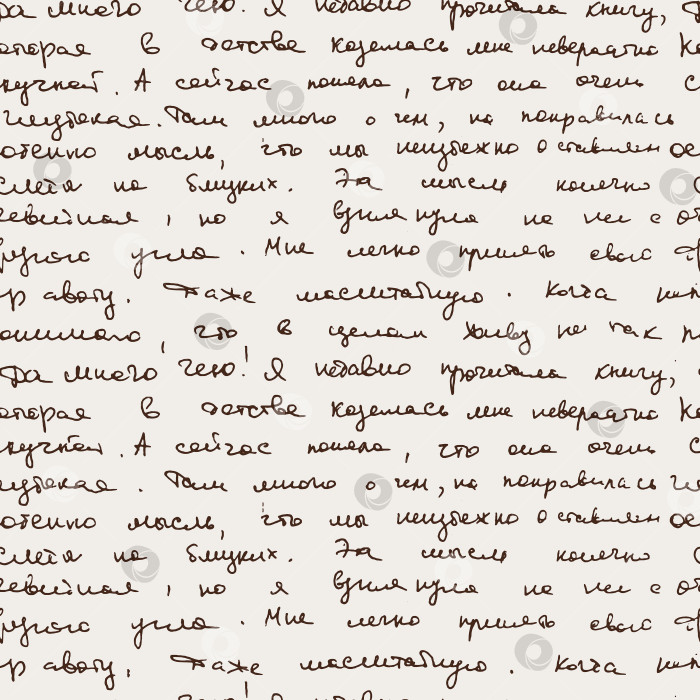 Да много чего! Я недавно прочитала книгу,
которая в детстве казалась мне невероятно
скучной. А сейчас поняла, что она очень
глубокая. Там много о чем, но понравилась
мысль, что мы неизбежно оставляем
на близких. Эта мысль конечно
но я взглянула на нее с
другого угла. Мне легко принять свою
авоту. Даже масштабную. Когда
понимаю, что в целом живу не так
Да много чего! Я недавно прочитала книгу,
которая в детстве казалась мне невероятно
скучной. А сейчас поняла, что она очень
глубокая. Там много о чем, но понравилась
мысль, что мы неизбежно оставляем
на близких. Эта мысль конечно
но я взглянула на нее с
другого угла. Мне легко принять свою
авоту. Даже масштабную. Когда